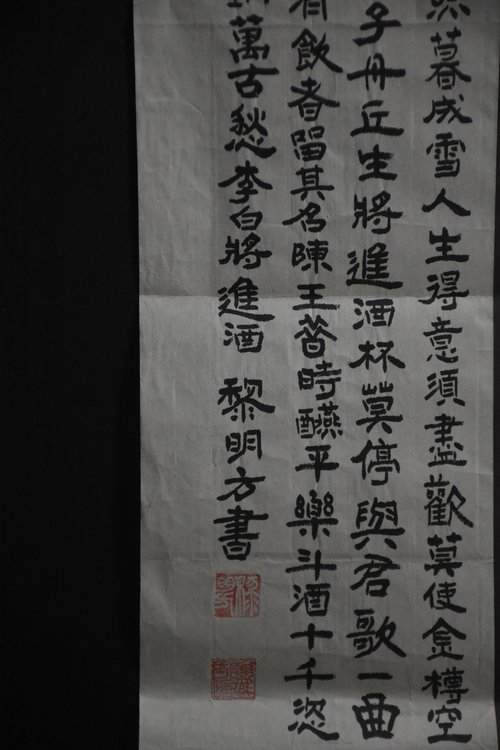 暮成雪人生得意須盡歡莫使金樽空
子丹丘生將進酒杯莫停與君歌一曲
有飲者留其名陳王昔時讌平樂斗酒十千恣
萬古愁李白將進酒 黎明方書